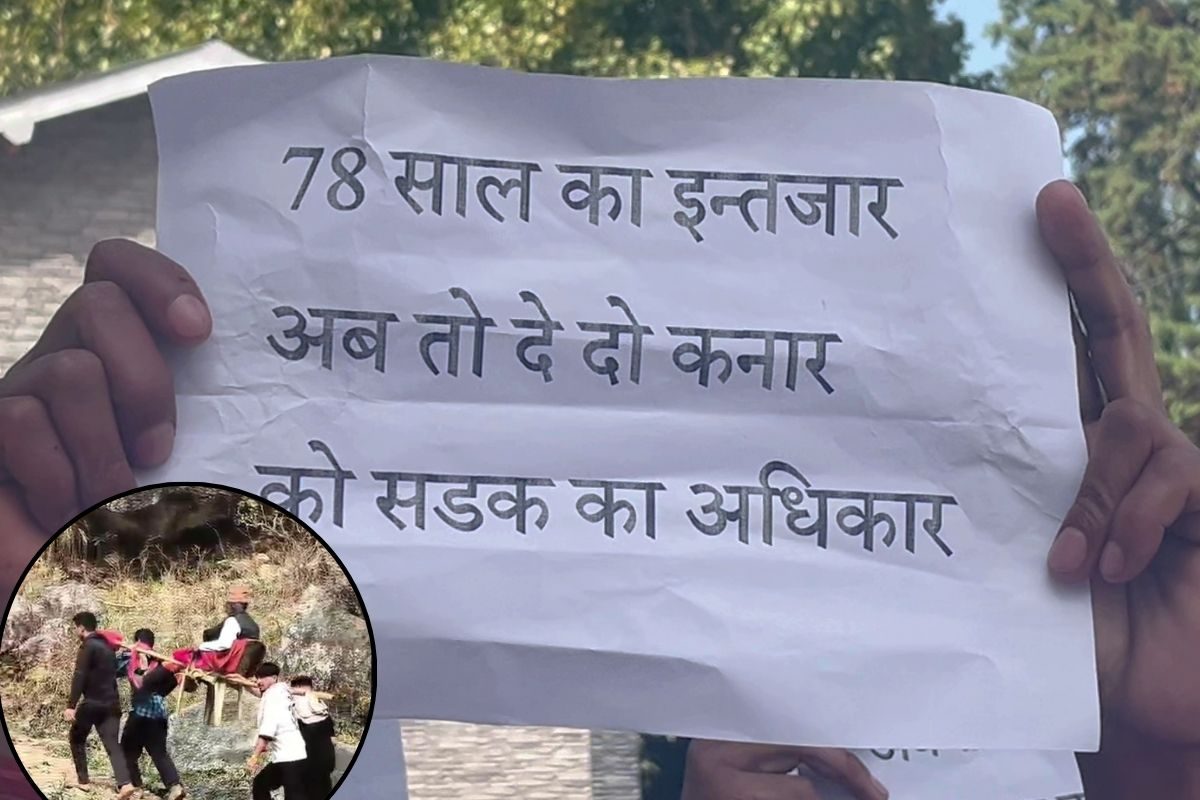 78 साल का इन्तजार
अब तो दे दो कनार
को सडक का अधिकार